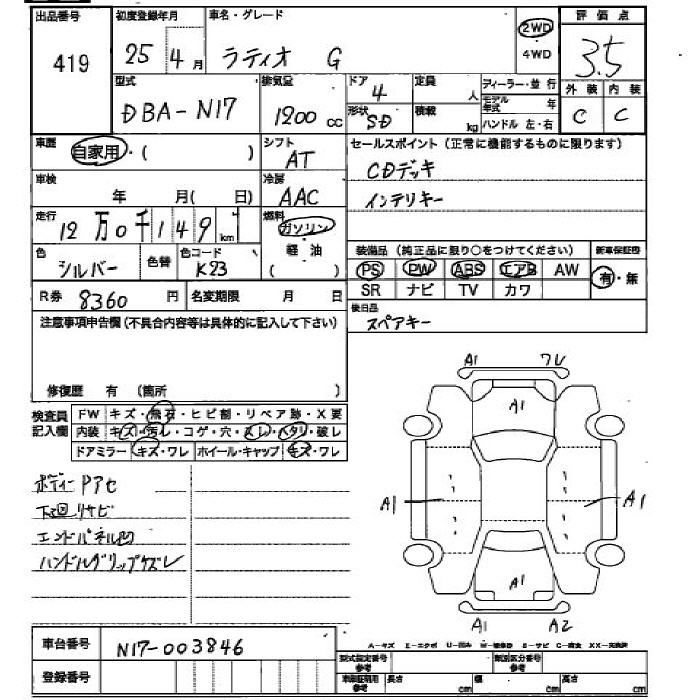 出品番号 初度登録年月 車名・グレード 評価点
419 25 4月 ラティオ G 2WD 4WD 3.5
型式 排気量 ドア 定員 ディーラー・並行 外装 内装
DBA-N17 1200cc 4 人 モデル年式 年 C C
形状 SD 積載 kg ハンドル 左・右
車歴 自家用・( ) シフト AT セールスポイント(正常に機能するものに限ります)
車検 年 月( 日) 冷房 AAC CDデッキ
インテリキー
走行 12万0千149km 燃料 ガソリン 軽油 ( )
色 シルバー 色替 色コード K23
装備品(純正品に限り○をつけてください) 新車保証書
PS PW ABS エアB AW 有・無
SR ナビ TV カワ
R券 8360円 名変期限 月 日 後日品
スペアキー
注意事項申告欄(不具合内容等は具体的に記入して下さい)
修復歴 有 (箇所 )
検査員記入欄 FW キズ・飛石・ヒビ割・リペア跡・X要
内装 キズ・汚れ・コゲ・穴・スレ・ヘタリ・破レ
ドアミラー キズ・ワレ ホイール・キャップ キズ・ワレ
ボディーPアセ
下廻リサビ
エンドパネル凹
ハンドルグリップケズレ
A1 ワレ
A1
A1 A1
A1
A1 A2
車台番号 N17-003846
登録番号
A-キズ E-エクボ U-凹み W-補修跡 S-サビ C-腐食 XX-交換済
型式指定番号 参考 類別区分番号 参考
車庫証明用 参考 長さ cm 幅 cm 高さ cm